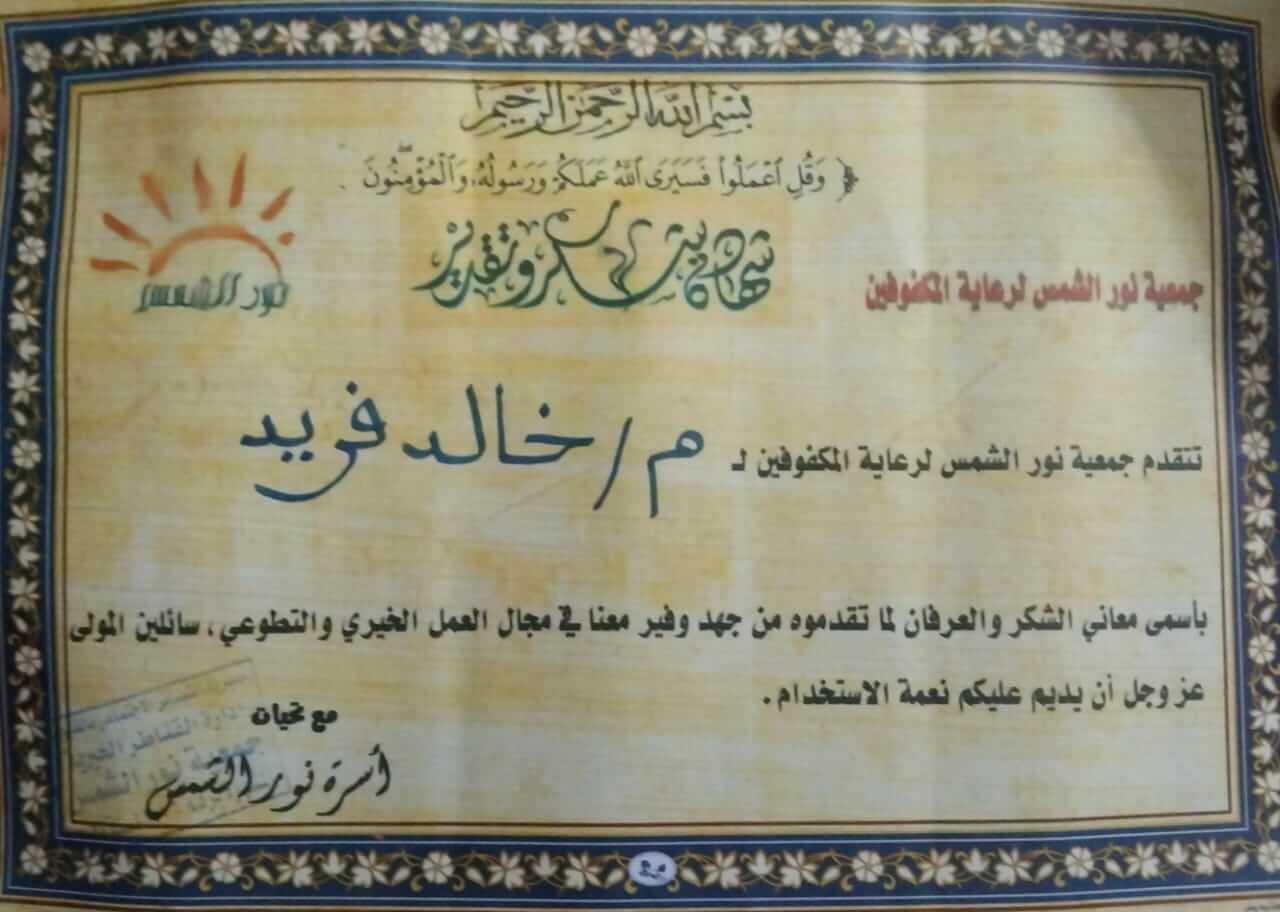 بسم الله الرحمن الرحيم
﴿ وَقُلِ ٱعْمَلُوا۟ فَسَيَرَى ٱللَّهُ عَمَلَكُمْ وَرَسُولُهُۥ وَٱلْمُؤْمِنُونَ
شهادة شكر وتقدير
نور الشمس
جمعية نور الشمس لرعاية المكفوفين
تتقدم جمعية نور الشمس لرعاية المكفوفين لـ م/ خالد فريد
بأسمى معاني الشكر والعرفان لما تقدموه من جهد وفير معنا في مجال العمل الخيري والتطوعي، سائلين المولى
عز وجل أن يديم عليكم نعمة الاستخدام.
مع تحيات
أسرة نور الشمس
إدارة القناطر الخيرية
جمعية نور الشمس